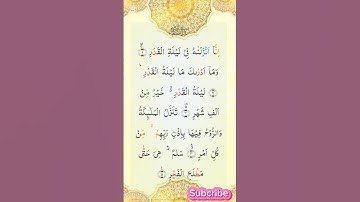 اِنَّاۤ اَنْزَلْنٰهُ فِیْ لَیْلَةِ الْقَدْرِ
وَمَاۤ اَدْرٰىكَ مَا لَیْلَةُ الْقَدْرِ
لَیْلَةُ الْقَدْرِ خَیْرٌ مِّنْ
اَلْفِ شَهْرٍ تَنَزَّلُ الْمَلٰٓىِٕكَةُ
وَالرُّوْحُ فِیْهَا بِاِذْنِ رَبِّهِمْ مِّنْ
كُلِّ اَمْرٍ سَلٰمٌ هِیَ حَتّٰی
مَطْلَعِ الْفَجْرِ
Subcribe